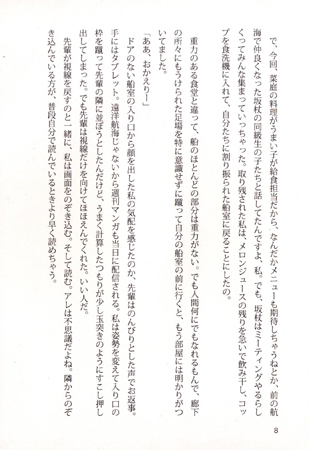 で、今回、菜庭の料理がうまい子が給食担当だから、なんだかメニューも期待しちゃうねとか、前の航
海で仲良くなった坂杖の同級生の子たちと話してたんですよ、私。でも、坂杖はミーティングやるらし
くってみんな集まっていっちゃった。取り残された私は、メロンジュースの残りを急いで飲み干し、コッ
プを食洗機に入れて、自分たちに割り振られた船室に戻ることにしたの。
重力のある食堂と違って、船のほとんどの部分は重力がない。でも人間何にでもなれるもんで、廊下
の所々にもうけられた足場を特に意識せずに蹴って自分の船室の前に行くと、もう部屋には明かりがつ
いてました。
「ああ、おかえりー」
ドアのない船室の入り口から顔を出した私の気配を感じたのか、先輩はのんびりとした声でお返事。
手にはタブレット。遠洋航海じゃないから週刊マンガも当日に配信される。私は姿勢を変えて入り口の
枠を蹴って先輩の隣に並ぼうとしたんだけど、うまく計算したつもりが少し玉突きのようにすこし押し
出してしまった。でも先輩は視線だけを向けてほほえんでくれた。いい人だ。
先輩が視線を戻すのと一緒に、私は画面をのぞき込む。そして読む。アレは不思議だよね。隣からのぞ
き込んでいる方が、普段自分で読んでいるときより早く読めちゃう。
8